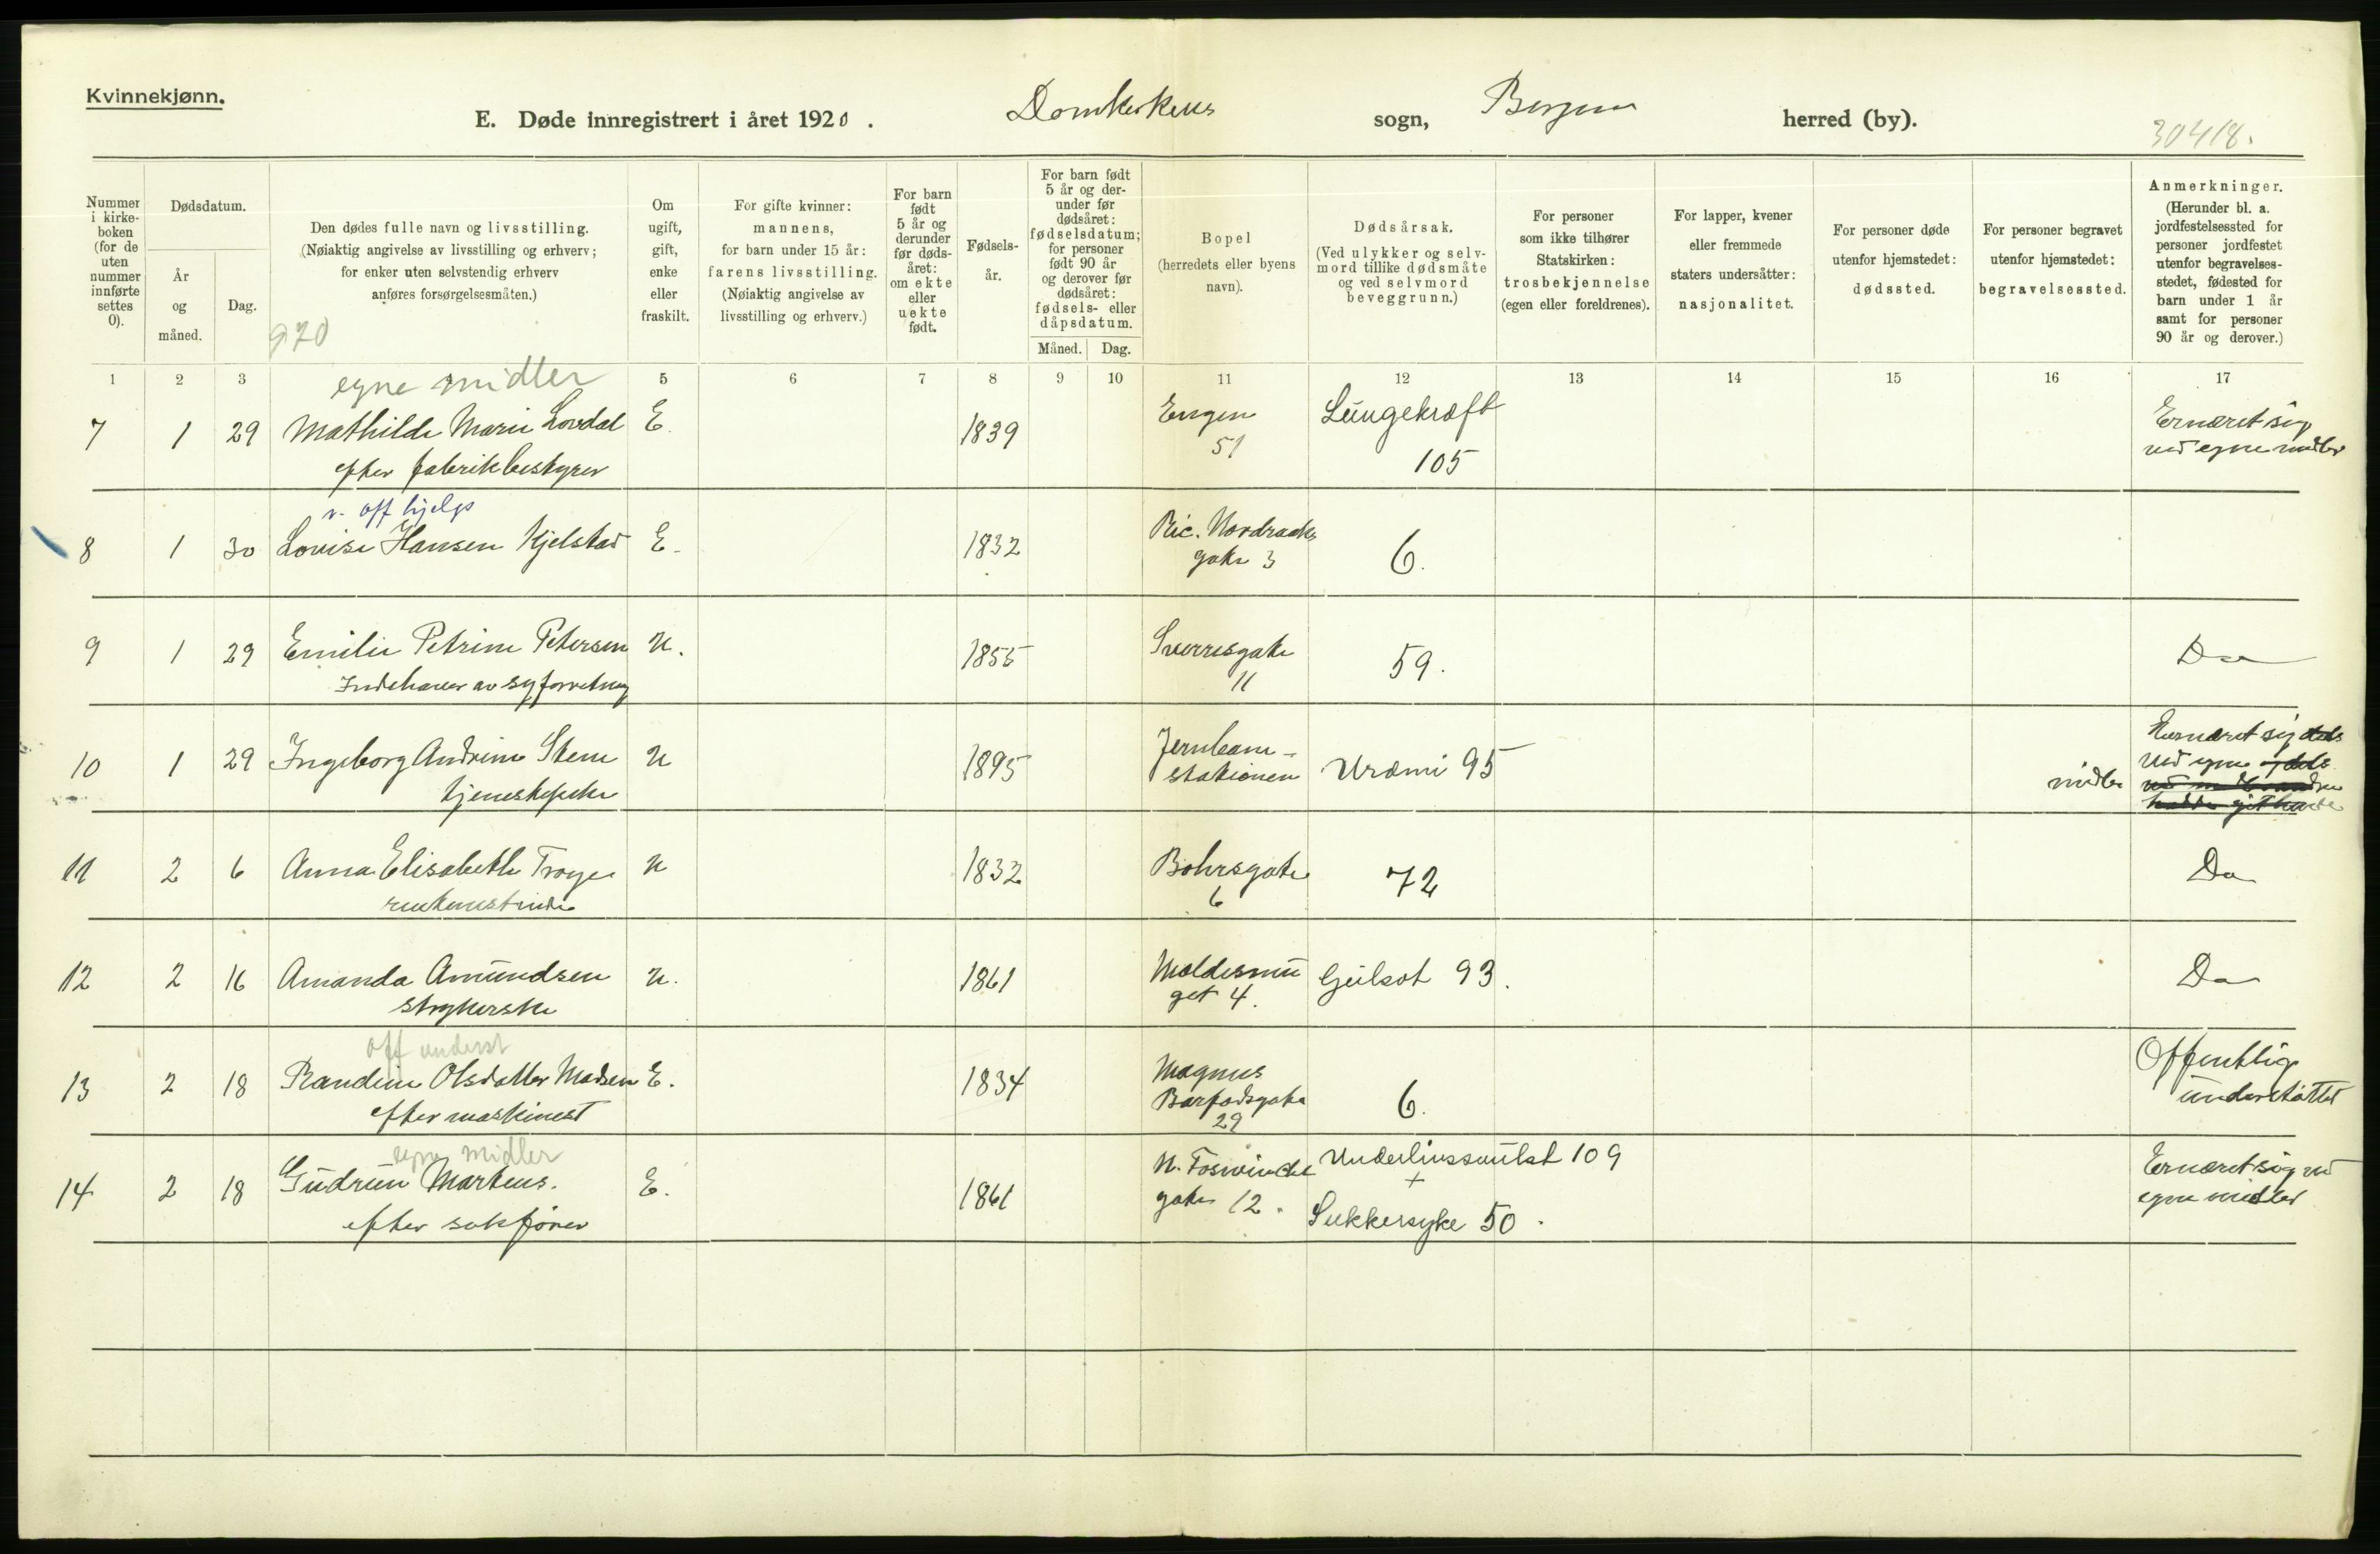 Kvinnekjønn.
E. Døde innregistrert i året 1920. Domkirkens sogn, Bergen herred (by).
30418.
Nummer i kirkeboken (for de uten nummer innførte settes 0).
Dødsdatum.
År og måned.
Dag.
Den dødes fulle navn og livsstilling.
(Nøiaktig angivelse av livsstilling og erhverv;
for enker uten selvstendig erhverv
anføres forsørgelsesmåten.)
970
Om ugift, gift, enke eller fraskilt.
For gifte kvinner:
mannens,
for barn under 15 år:
farens livsstilling.
(Nøiaktig angivelse av
livsstilling og erhverv.)
For barn født 5 år og derunder før dødsåret: om ekte eller uekte født.
Fødselsår.
For barn født 5 år og derunder før dødsåret: fødselsdatum; for personer født 90 år og derover før dødsåret: fødsels- eller dåpsdatum.
Måned. Dag.
Bopel
(herredets eller byens
navn).
Dødsårsak.
(Ved ulykker og selvmord tillike dødsmåte og ved selvmord beveggrunn.)
For personer
som ikke tilhører
Statskirken:
trosbekjennelse
(egen eller foreldrenes).
For lapper, kvener
eller fremmede
staters undersåtter:
nasjonalitet.
For personer døde
utenfor hjemstedet:
dødssted.
For personer begravet
utenfor hjemstedet:
begravelsessted.
Anmerkninger.
(Herunder bl. a.
jordfestelsessted for
personer jordfestet
utenfor begravelses-
stedet, fødested for
barn under 1 år
samt for personer
90 år og derover.)
1 2 3 5 6 7 8 9 10 11 12 13 14 15 16 17
egne midler
7 1 29 Mathilde Marie Lovdal E. 1839 Engen 51 Lungekræft 105 Ernæret sig
efter fabrikbestyrer
ved egne midler
v. off hjelp
8 1 30 Lovise Hansen Kjelstad E. 1832 Ric. Nordraaks gate 3 6.
9 1 29 Emilie Petrine Petersen U. 1855 Sverresgate 11 59. Do
Indehaver av syforretning
10 1 29 Ingeborg Andrine Stene U 1895 Jernbane-stationen Uræmi 95 Ernæret sig dels
tjenestepike
ved egne og dels
midler
11 2 6 Anna Elisabeth Troye U 1832 Bohrsgate 6 72 Do
12 2 16 Amanda Amundsen U. 1861 Moldesmuget 4. Gulsot 93. Do
strykerske
off underst
13 2 18 Randine Olsdatter Madsen E. 1834 Magnus Barfodsgate 29 6. Offentlig
efter maskinest
understøttet
egne midler
14 2 18 Gudrun Martens. E. 1861 N. Foswinckel gate 12. Underlivssvulst 109 Ernæret sig ved
efter sakfører
+
Sukkersyke 50.
egne midler